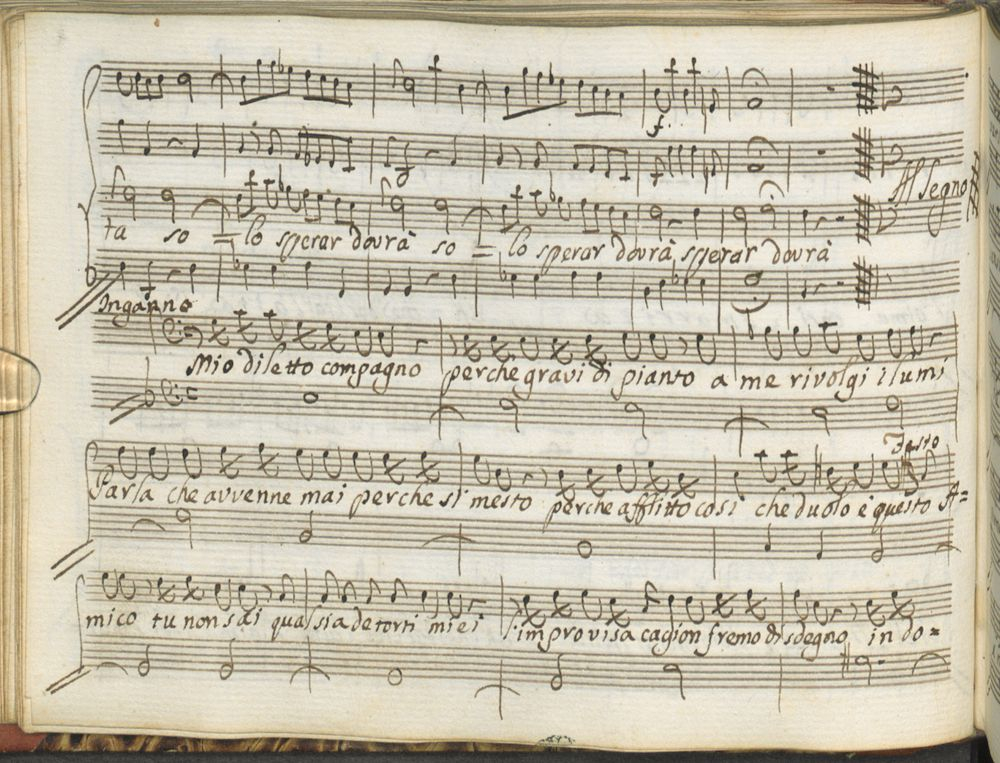 f.
Al Segno
ta so = lo sperar dovrà so = lo sperar dovrà sperar dovrà
Inganno
Mio diletto compagno perche gravi di pianto a me rivolgi i lumi
Fasto
Parla che avvenne mai perche si mesto perche afflitto cosi che duolo è questo A=
mico tu non sai qual sia de torti miei l'improvisa cagion fremo di sdegno in do=